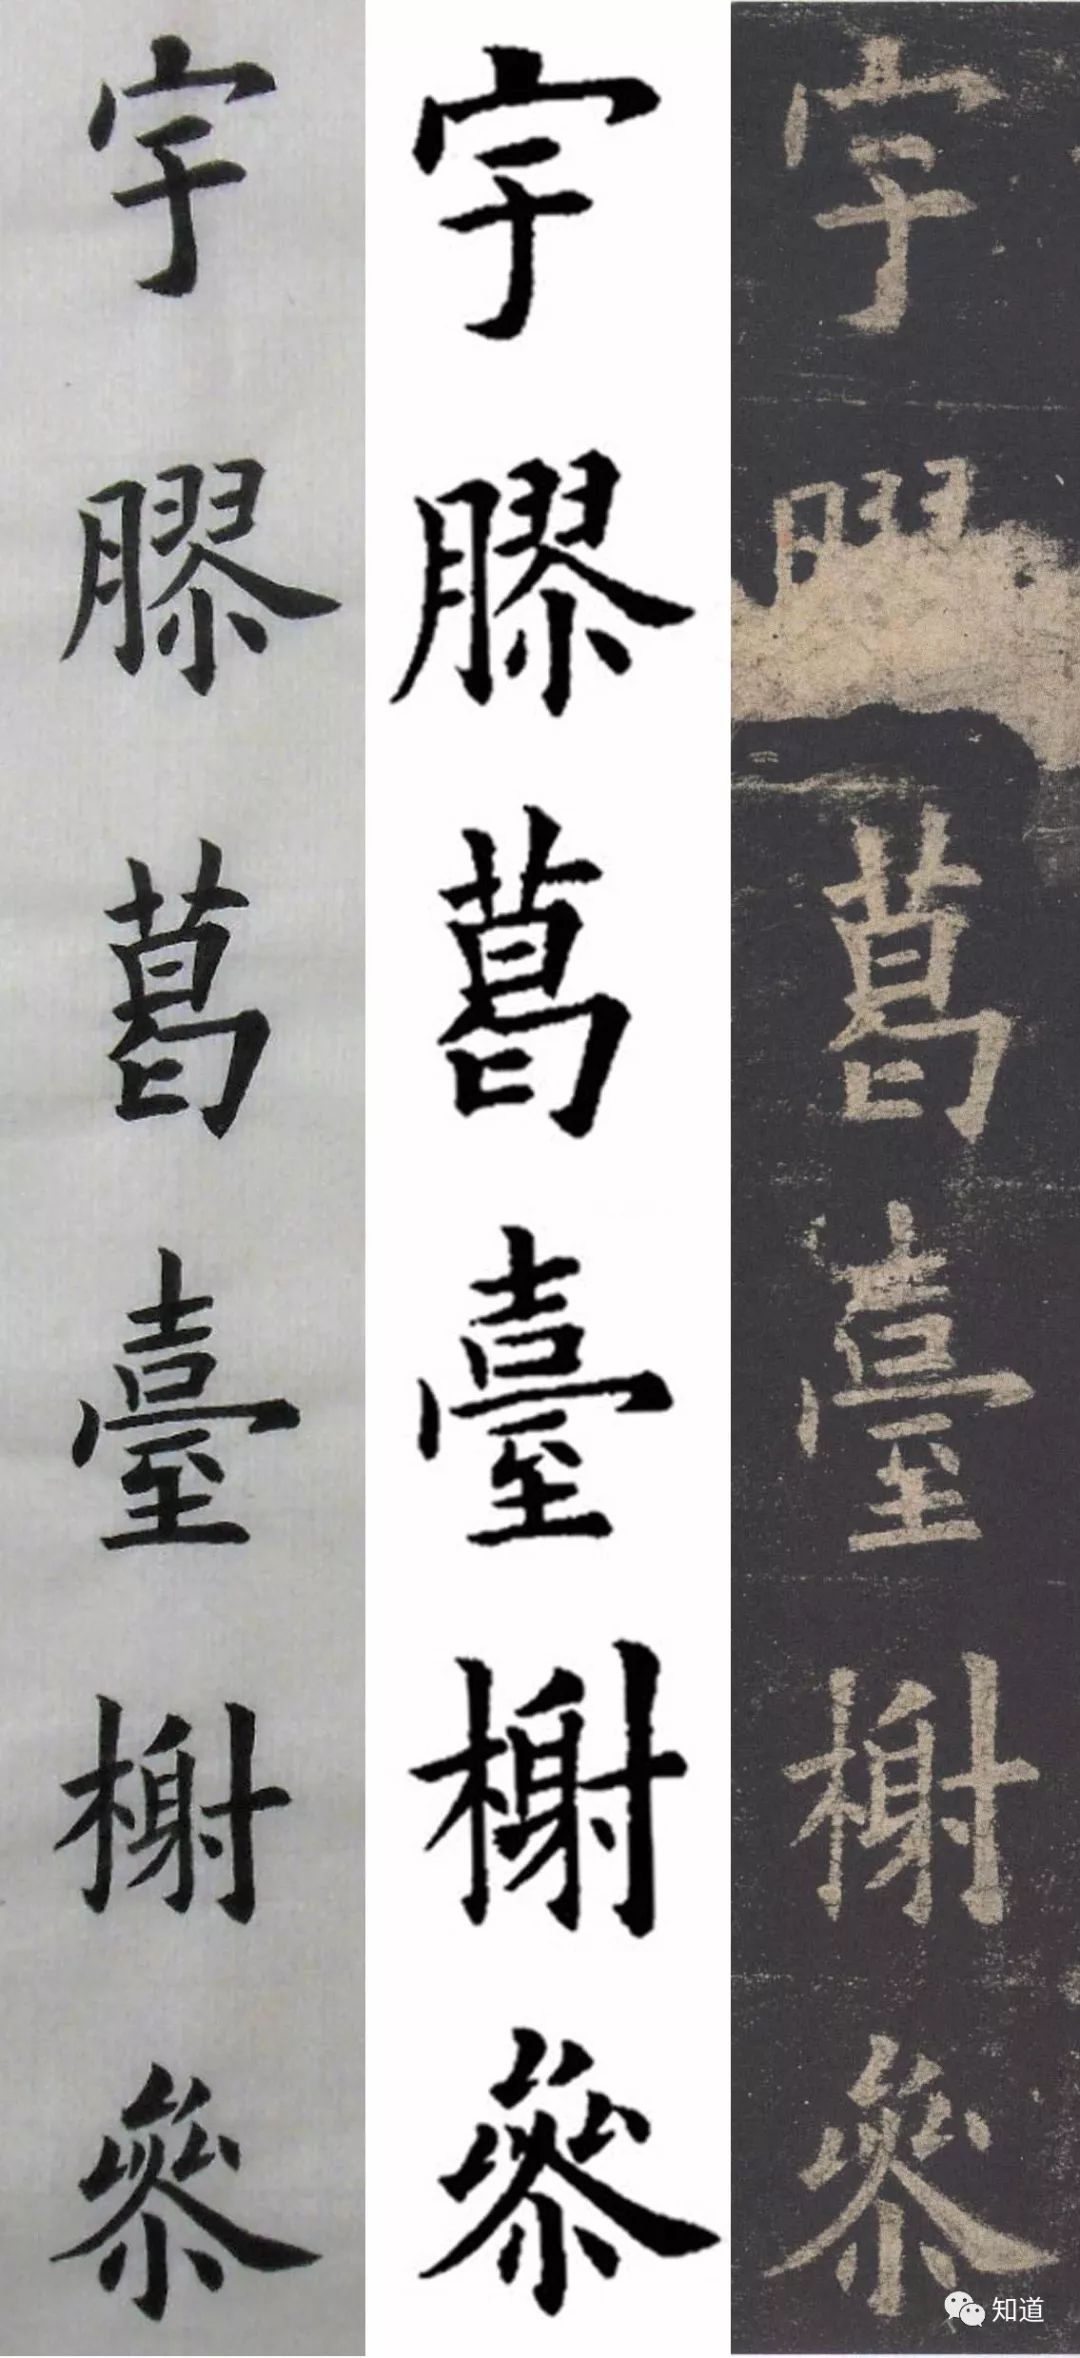 宇膠葛臺榭參
宇膠葛臺榭參
宇膠葛臺榭參
知道